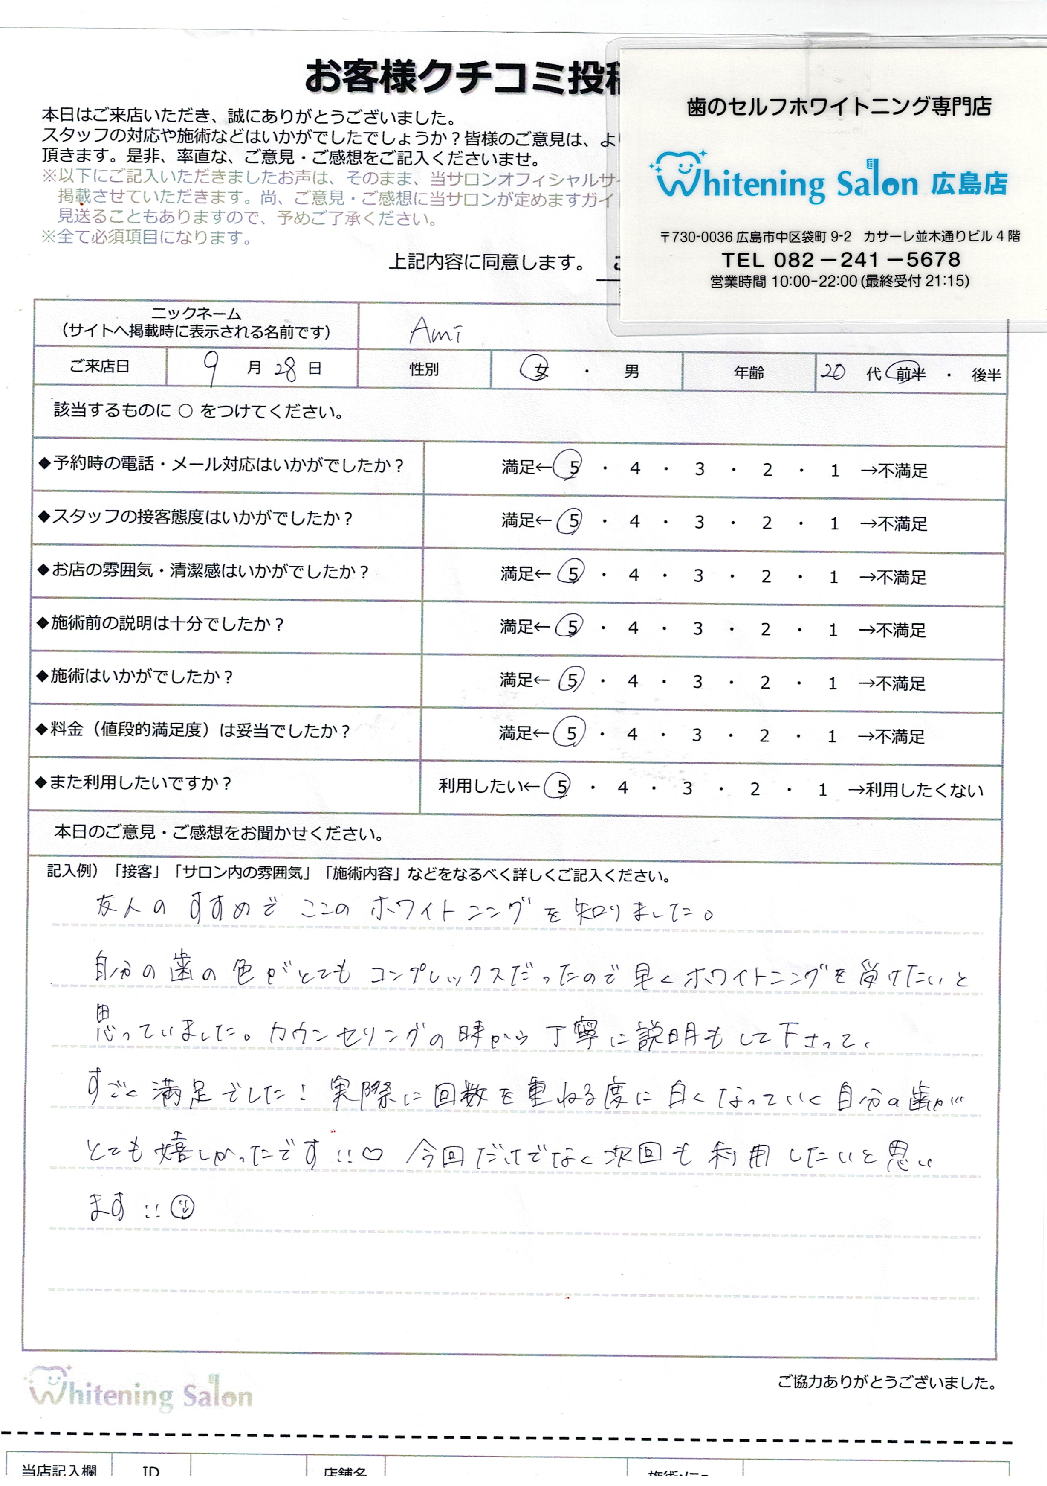 お客様クチコミ投稿
本日はご来店いただき、誠にありがとうございました。
スタッフの対応や施術などはいかがでしたでしょうか？皆様のご意見は、より
頂きます。是非、率直な、ご意見・ご感想をご記入くださいませ。
※以下にご記入いただきましたお声は、そのまま、当サロンオフィシャルサイ
掲載させていただきます。尚、ご意見・ご感想に当サロンが定めますガイ
見送ることもありますので、予めご了承ください。
※全て必須項目になります。
上記内容に同意します。
歯のセルフホワイトニング専門店
Whitening Salon 広島店
〒730-0036 広島市中区袋町 9-2 カサーレ並木通りビル 4 階
TEL 082－241－5678
営業時間 10:00-22:00 (最終受付 21:15)
ニックネーム
（サイトへ掲載時に表示される名前です）
Ami
ご来店日 9 月 28 日 性別 女 ・ 男 年齢 20 代 前半 ・ 後半
該当するものに ○ をつけてください。
◆予約時の電話・メール対応はいかがでしたか？ 満足← 5 ・ 4 ・ 3 ・ 2 ・ 1 →不満足
◆スタッフの接客態度はいかがでしたか？ 満足← 5 ・ 4 ・ 3 ・ 2 ・ 1 →不満足
◆お店の雰囲気・清潔感はいかがでしたか？ 満足← 5 ・ 4 ・ 3 ・ 2 ・ 1 →不満足
◆施術前の説明は十分でしたか？ 満足← 5 ・ 4 ・ 3 ・ 2 ・ 1 →不満足
◆施術はいかがでしたか？ 満足← 5 ・ 4 ・ 3 ・ 2 ・ 1 →不満足
◆料金（値段的満足度）は妥当でしたか？ 満足← 5 ・ 4 ・ 3 ・ 2 ・ 1 →不満足
◆また利用したいですか？ 利用したい← 5 ・ 4 ・ 3 ・ 2 ・ 1 →利用したくない
本日のご意見・ご感想をお聞かせください。
記入例）「接客」「サロン内の雰囲気」「施術内容」などをなるべく詳しくご記入ください。
友人のすすめでここのホワイトニングを知りました。
自分の歯の色がとてもコンプレックスだったので早くホワイトニングを受けたいと
思っていました。カウンセリングの時から丁寧に説明もして下さって、
すごく満足でした！実際に回数を重ねる度に白くなっていく自分の歯が
とても嬉しかったです!!♡ 今回だけでなく次回も利用したいと思い
ます!!
Whitening Salon
ご協力ありがとうございました。
当店記入欄 ID 店舗名 施術メニュー